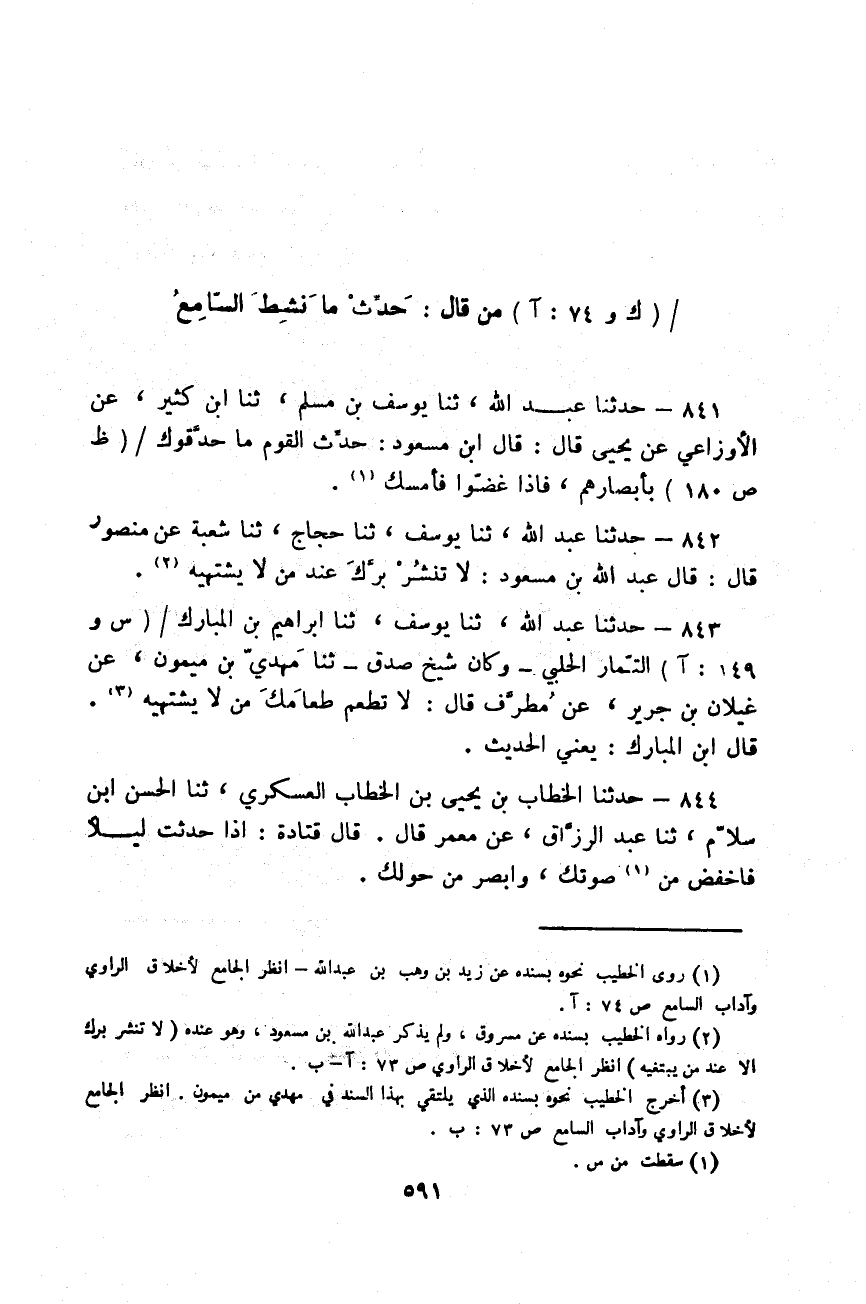 / ( ك و ٧٤ : آ ) من قال : حَدِّثْ ما نَشِطَ السّامِعُ
٨٤١ – حدثنا عبد الله ، ثنا يوسف بن مسلم ، ثنا ابن كثير ، عن
الأوزاعي عن يحيى قال : قال ابن مسعود : حدِّث القوم ما حدَّقوك / ( ظ
ص ١٨٠ ) بأبصارهم ، فاذا غضّوا فأمسك (١) .
٨٤٢ – حدثنا عبد الله ، ثنا يوسف ، ثنا حجاج ، ثنا شعبة عن منصور
قال : قال عبد الله بن مسعود : لا تنشُرْ برَّكَ عند من لا يشتهيه (٢) .
٨٤٣ – حدثنا عبد الله ، ثنا يوسف ، ثنا ابراهيم بن المبارك / ( س و
١٤٩ : آ ) التمّار الحلبي – وكان شيخ صدق – ثنا مَهديّ بن ميمون ، عن
غيلان بن جرير ، عن مُطرَّف قال : لا تطعم طعامَكَ من لا يشتهيه (٣) .
قال ابن المبارك : يعني الحديث .
٨٤٤ – حدثنا الخطاب بن يحيى بن الخطاب العسكري ، ثنا الحسن ابن
سلاّم ، ثنا عبد الرزَّاق ، عن معمر قال . قال قتادة : اذا حدثت ليلاً
فاخفض من (١) صوتك ، وابصر من حولك .
(١) روى الخطيب نحوه بسنده عن زيد بن وهب بن عبدالله – انظر الجامع لأخلاق الراوي
وآداب السامع ص ٧٤ : آ .
(٢) رواه الخطيب بسنده عن مسروق ، ولم يذكر عبدالله بن مسعود ، وهو عنده ( لا تنشر برك
الا عند من يبتغيه ) انظر الجامع لأخلاق الراوي ص ٧٣ : آ – ب .
(٣) أخرج الخطيب نحوه بسنده الذي يلتقي بهذا السند في مهدي من ميمون . انظر الجامع
لأخلاق الراوي وآداب السامع ص ٧٣ : ب .
(١) سقطت من س .
٥٩١